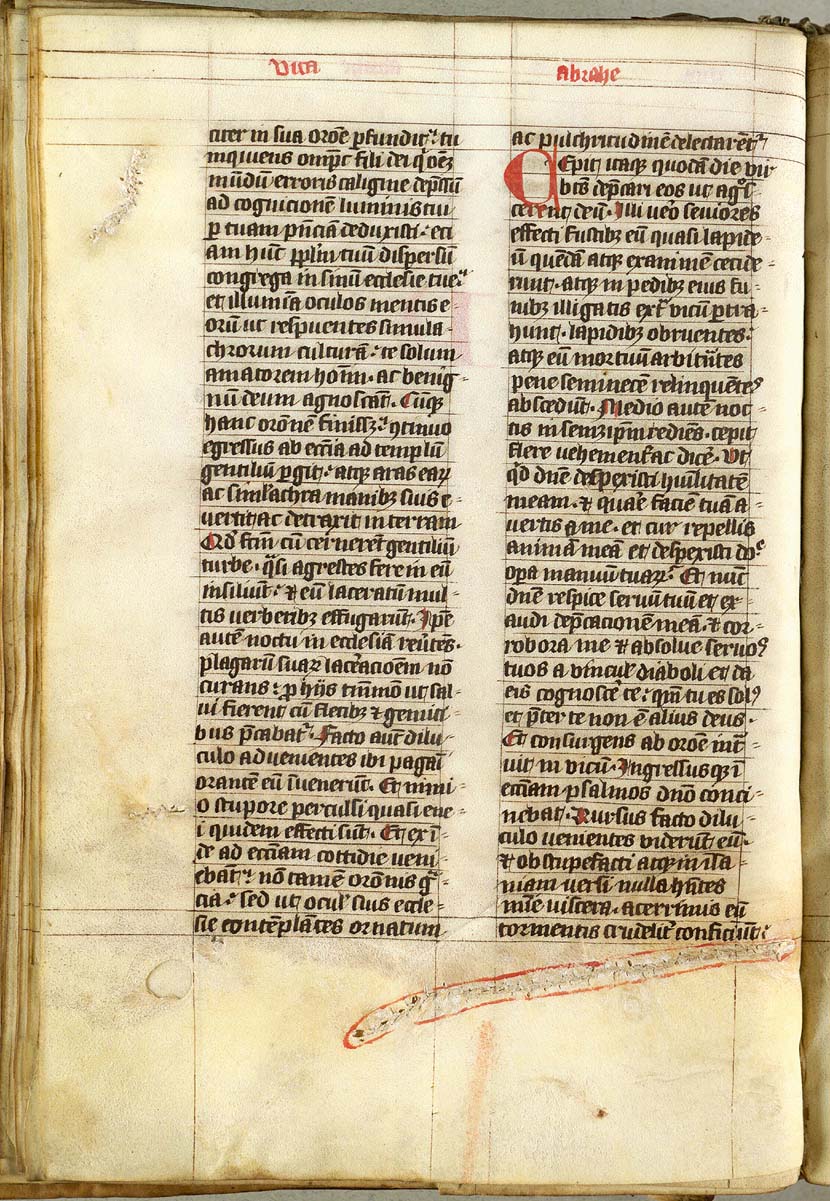 Vita
Abrahe
citer in sua orōe ꝑfundit᷑ tu
inquiens omp̄c fili dei q̇ oēȝ
mūdū erroris caligine dep̄ssū
ad cognicionem luminis tui
ꝑ tuam p̄nciā deduxisti· eti
am hūc pp̄lm tuū dispersū
congrega in sinū ecclesie tue·
et illumīa oculos mentis e-
orū ut respuentes simula-
chrorum culturā· te solum
amatorem hoīm· ac benig-
nū deum agnoscāt· Cumqꝫ
hanc orōnem finissȝ· ꝯtinuo
egressus ab ecc̄ia ad templū
gentiliū ꝑgit· atqꝫ aras eaꝝ
ac simlachra manibꝫ suis e-
vertit ac detraxit in terram
Qd̄ fc̄m cū cerneret gentiliū
turbe· qͣsi agrestes fere in eū
insiliūt· et eū laceratū mul-
tis verberibꝫ effugarūt· Ip̄e
autē noctu in ecclesiā reūtes·
plagarū suaꝝ lac̄acioēm nō
curans· ꝓ hijs tn̄ mō ut sal-
ui fierent cū fletibꝫ ⁊ gemiti-
bus p̄cabat᷑· Facto aut̄ dilu-
culo advenientes ibi pagani
orantē eū īuenerūt· Et nimi-
o stupore perculsi quasi ene-
i quidem effecti sūt· Et exī-
de ad ecc̄iam cottidie veni-
ebāt· nō tamē orōnis gͣ-
cia· sed ut ocul' suis eccle-
sie contēplātes ornatum
ac pulchritudinē delectarēt᷑
Cepit itaqꝫ quodā die vir
btūs dep̄cari eos ut agͦs-
cerent deū· Illi uero seviores
effecti fustibꝫ eū quasi lapide-
ū quendā atqꝫ exanimē cecide-
runt· atqꝫ in pedibꝫ eius fu-
nibꝫ illigatis ext̄ vicū ꝑtra-
hunt· lapidibꝫ obruentes·
atqꝫ eū mortuū arbit̄ntes
pene seminecē relinquētes
abscedūt· Medio autē noc-
tis in semȝ ip̄m rediēs· cepit
flere vehement̄ ac dicē· Ut
qͥd dn̄e despexisti huīlitatē
meam· et quare faciē tuā a-
vertis a me· et cur repellis
animā meā et despexisti dn̄e
opa manuū tuaꝝ· Et nūc
dn̄e respice servū tuū et ex-
audi dep̄cacionē meā· et cor-
robora me et absolue servos
tuos a vincul' diaboli et da
eis cognoscē te· qm̄ tu es solꝰ
et p̄ter te non ē alius deus·
Et consurgens ab orōe int̄-
uit in vicū· Ingressusqꝫ ī
ecc̄iam psalmos dn̄o conci-
nebat· Rursus facto dilu-
culo venientes viderūt eū·
et obstupefacti atqꝫ in īsa-
niam versi nulla hn̄tes
mīe viscera· acerrimis eū
tormentis crudelit̄ conficiūt·